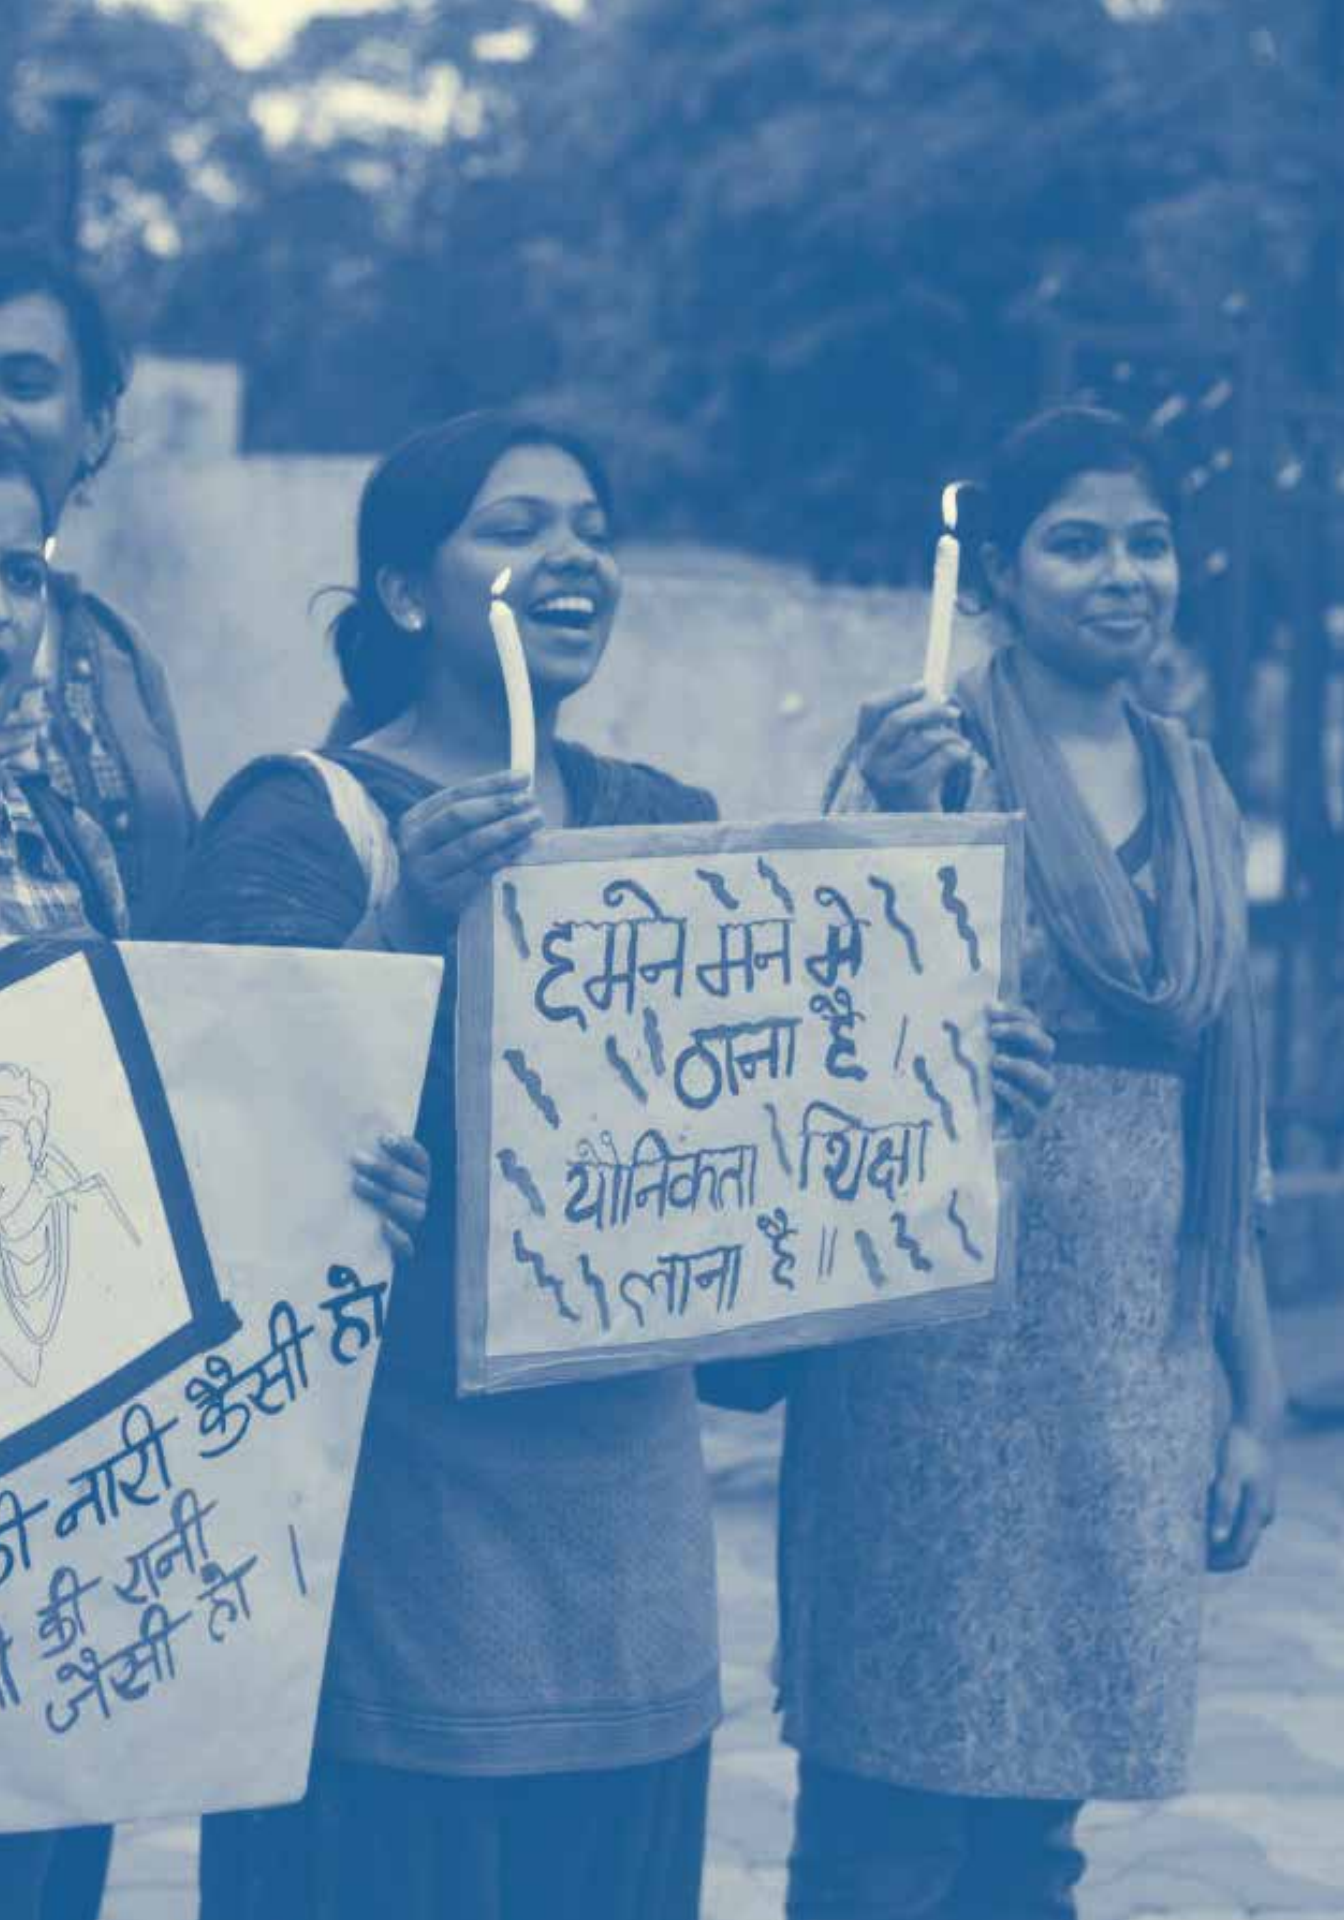 हमने मन मे
ठाना है ।
यौनिकता शिक्षा
लाना है ॥
नारी कैसी हो
की रानी
जैसी हो ।